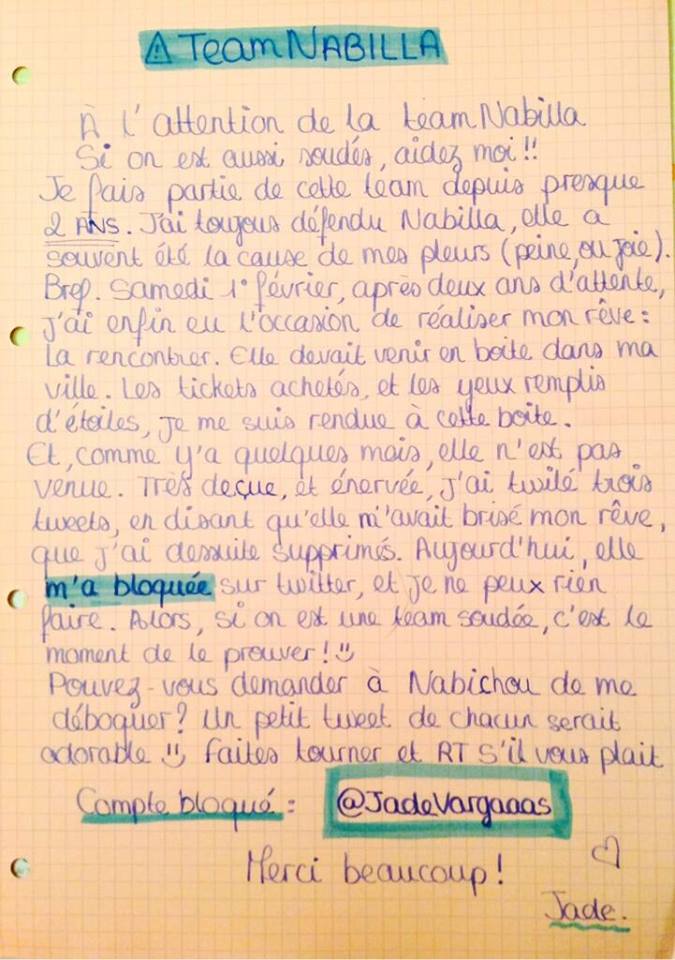 ⚠ Team NABILLA
À l'attention de la team Nabilla
Si on est aussi soudés, aidez moi !!
Je fais partie de cette team depuis presque
2 ANS. J'ai toujous défendu Nabilla, elle a
souvent été la cause de mes pleurs (peine, ou joie).
Bref. Samedi 1° février, après deux ans d'attente,
j'ai enfin eu l'occasion de réaliser mon rêve :
La rencontrer. Elle devait venir en boite dans ma
ville. Les tickets achetés, et les yeux remplis
d'étoiles, je me suis rendue à cette boite.
Et, comme y'a quelques mois, elle n'est pas
venue. Très deçue, et énervée, j'ai twité trois
tweets, en disant qu'elle m'avait brisé mon rêve,
que j'ai dessuite supprimés. Aujourd'hui, elle
m'a bloquée sur twitter, et je ne peux rien
faire. Alors, si on est une team soudée, c'est le
moment de le prouver ! :)
Pouvez-vous demander à Nabichou de me
déboquer ? Un petit tweet de chacun serait
adorable :) faites tourner et RT S'il vous plait
Compte bloqué : @JadeVargaaas
Merci beaucoup ! ♡
Jade.